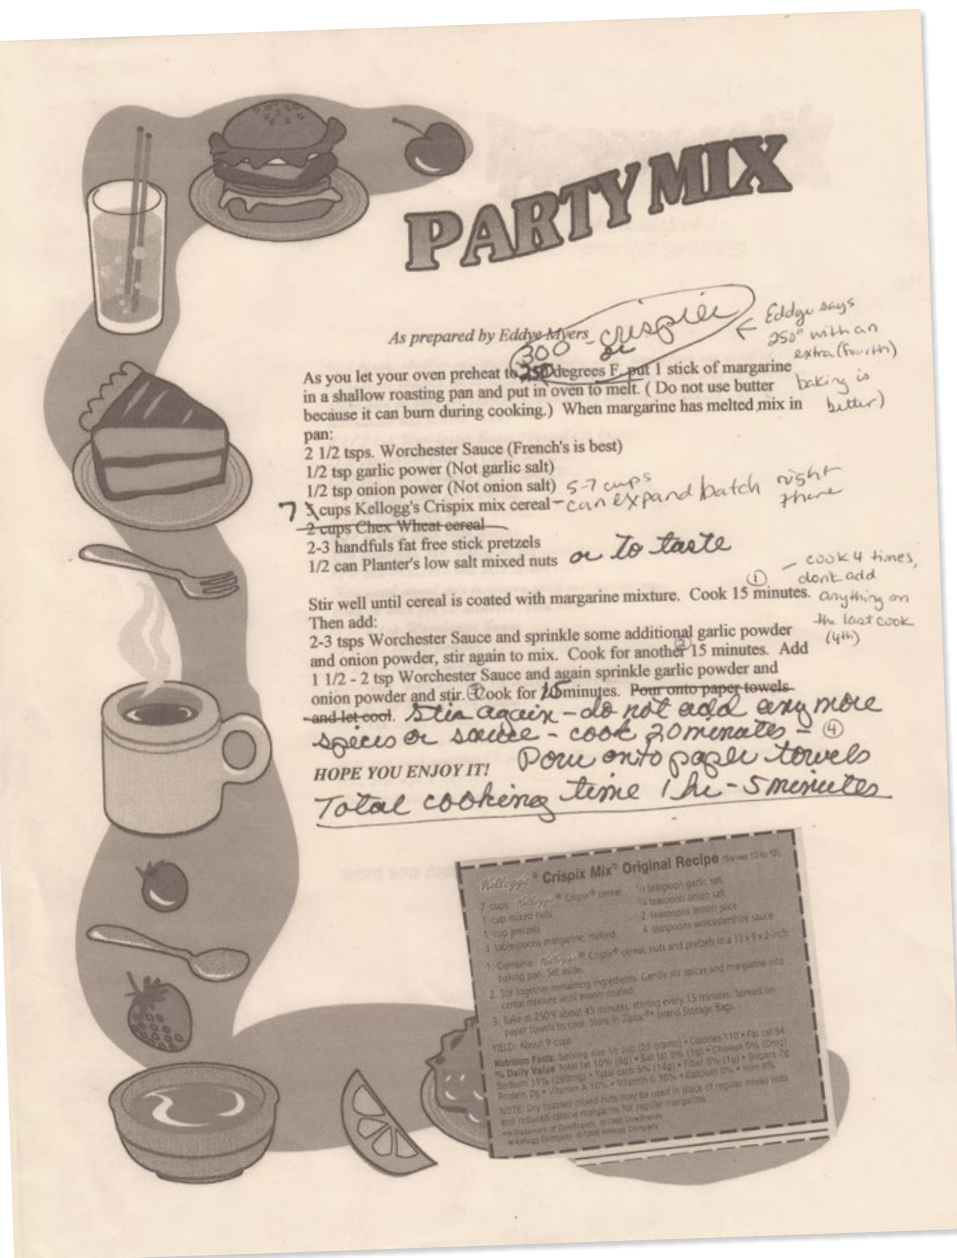 PARTY MIX
As prepared by Eddye Myers
300 - crispier
or
← Eddye says
250° with an
extra (fourth)
baking is
better)
As you let your oven preheat to 250 degrees F. put 1 stick of margarine
in a shallow roasting pan and put in oven to melt. ( Do not use butter
because it can burn during cooking.) When margarine has melted mix in
pan:
2 1/2 tsps. Worchester Sauce (French's is best)
1/2 tsp garlic power (Not garlic salt)
1/2 tsp onion power (Not onion salt)
5-7 cups
7 cups Kellogg's Crispix mix cereal - can expand batch right
there
2 cups Chex Wheat cereal
2-3 handfuls fat free stick pretzels
1/2 can Planter's low salt mixed nuts or to taste
Stir well until cereal is coated with margarine mixture. Cook 15 minutes. ①
— cook 4 times,
dont add
anything on
the last cook
(4th)
Then add:
2-3 tsps Worchester Sauce and sprinkle some additional garlic powder
and onion powder, stir again to mix. Cook for another ② 15 minutes. Add
1 1/2 - 2 tsp Worchester Sauce and again sprinkle garlic powder and
onion powder and stir. ③ Cook for 15 minutes. Pour onto paper towels
and let cool. Stir again - do not add any more
spices or sauce - cook 20 minutes - ④
Pour onto paper towels
HOPE YOU ENJOY IT!
Total cooking time 1 hr - 5 minutes
Kellogg's® Crispix Mix® Original Recipe (Serves 10 to 12)
7 cups Kellogg's® Crispix® cereal
1 cup mixed nuts
1 cup pretzels
3 tablespoons margarine, melted
¼ teaspoon garlic salt
¼ teaspoon onion salt
2 teaspoons lemon juice
4 teaspoons worcestershire sauce
1. Combine Kellogg's® Crispix® cereal, nuts and pretzels in a 13 x 9 x 2-inch
baking pan. Set aside.
2. Stir together remaining ingredients. Gently stir spices and margarine into
cereal mixture until evenly coated.
3. Bake at 250°F about 45 minutes, stirring every 15 minutes. Spread on
paper towels to cool. Store in Ziploc® brand Storage Bags.
YIELD: About 9 cups
Nutrition Facts: Serving size cup (28 grams) • Calories 110 • Fat cal 54
% Daily Value Total fat 10% (6g) • Sat fat 5% (1g) • Cholest 0% (0mg)
Sodium 11% (260mg) • Total carb 5% (14g) • Fiber 6% (1g) • Sugars 2g
Protein 2g • Vitamin A 10% • Vitamin C 10% • Calcium 0% • Iron 6%
NOTE: Dry roasted mixed nuts may be used in place of regular mixed nuts
and reduced-calorie margarine for regular margarine.
Kellogg Company ©1996 Kellogg Company